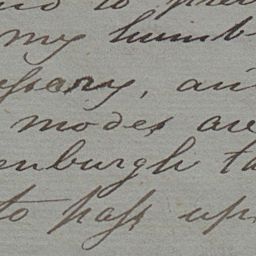 to
my humb
essary, an
modes are
enburgh ta
to pass up